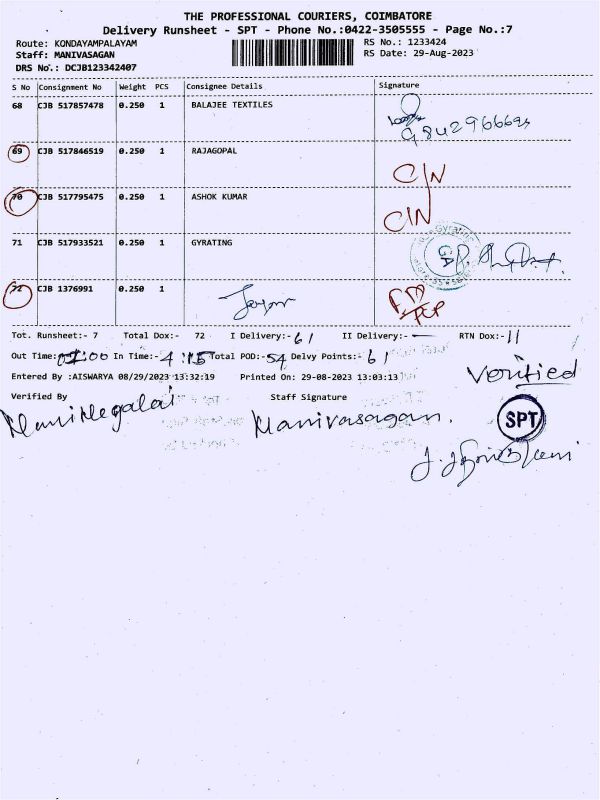 THE PROFESSIONAL COURIERS, COIMBATORE
Delivery Runsheet - SPT - Phone No.:0422-3505555 - Page No.:7
Route: KONDAYAMPALAYAM RS No.: 1233424
Staff: MANIVASAGAN RS Date: 29-Aug-2023
DRS No.: DCJB123342407
S No Consignment No Weight PCS Consignee Details Signature
68 CJB 517857478 0.250 1 BALAJEE TEXTILES
69 CJB 517846519 0.250 1 RAJAGOPAL C/N
70 CJB 517795475 0.250 1 ASHOK KUMAR C/N
71 CJB 517933521 0.250 1 GYRATING
72 CJB 1376991 0.250 1
Tot. Runsheet:- 7 Total Dox:- 72 I Delivery:- 61 II Delivery:- — RTN Dox:- 11
Out Time: :00 In Time:- 4:15 Total POD:- 54 Delvy Points:- 61
Entered By :AISWARYA 08/29/2023 13:32:19 Printed On: 29-08-2023 13:03:13 Verified
Verified By Staff Signature
ManiMegalai Manivasagan. SPT